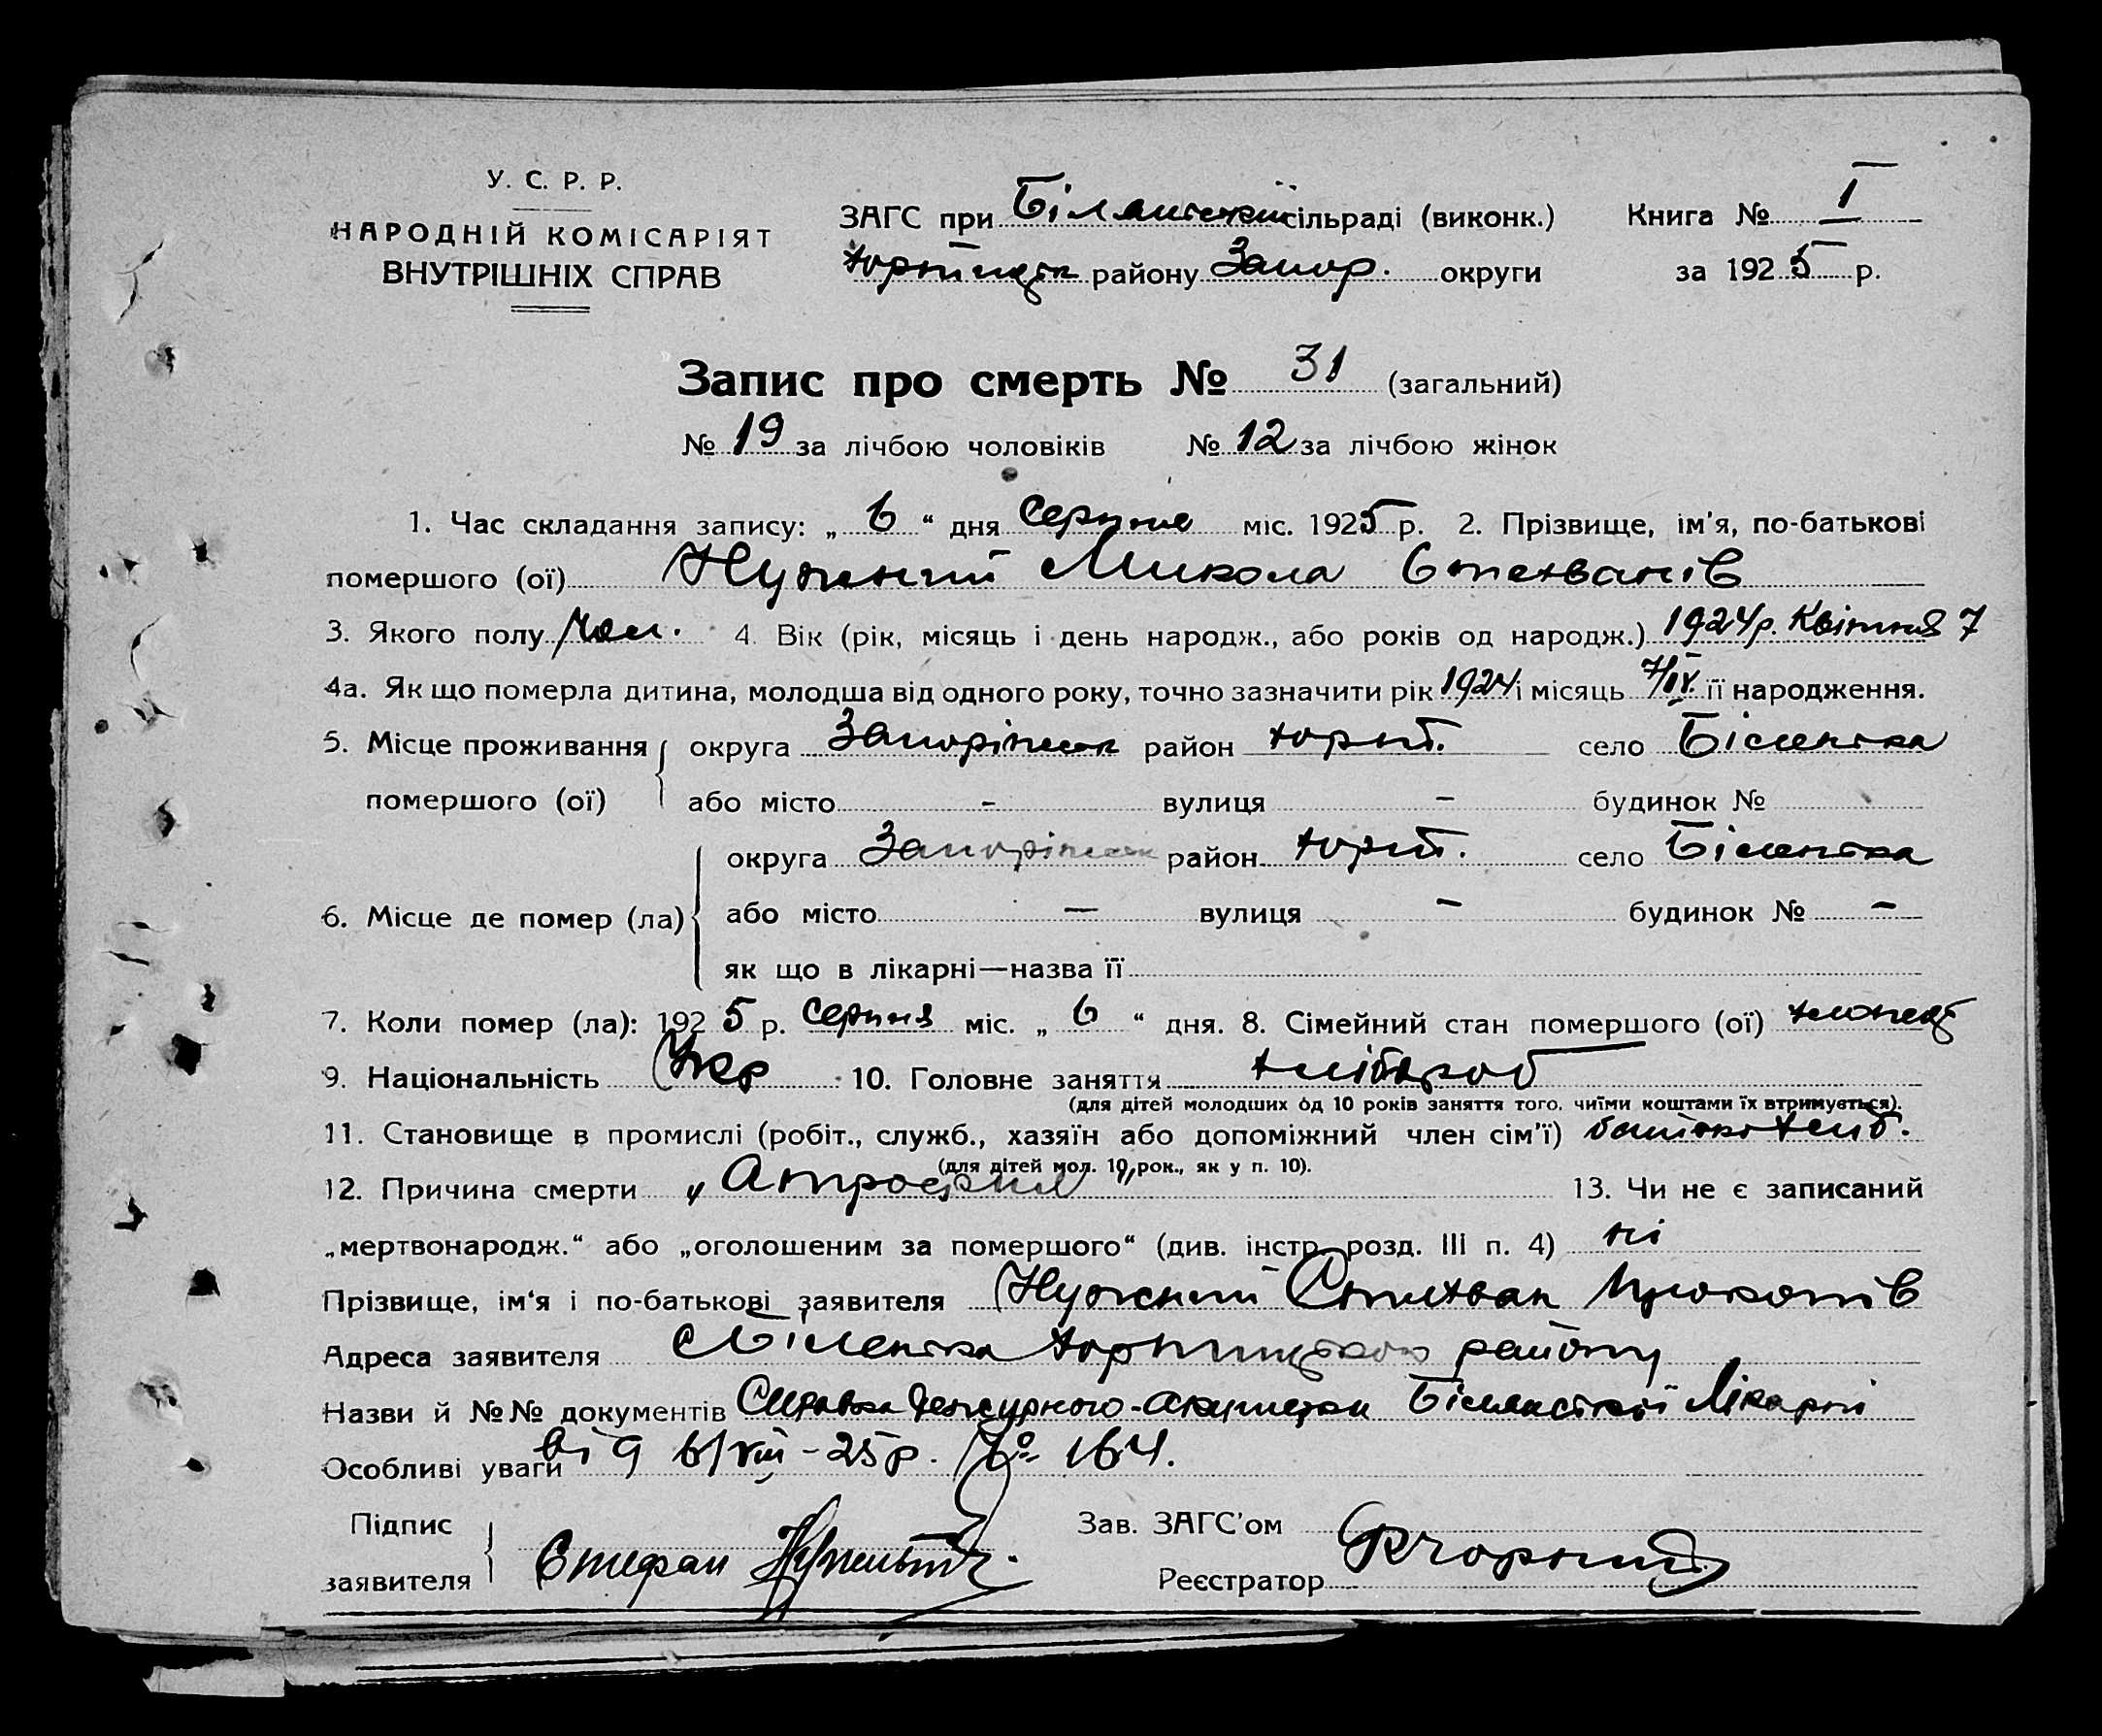 У. С. Р. Р.
НАРОДНІЙ КОМІСАРІЯТ
ВНУТРІШНІХ СПРАВ
ЗАГС при Біленській сільраді (виконк.)
Хортицьк району Запор. округи
Книга № I
за 1925 р.
Запис про смерть № 31 (загальний)
№ 19 за лічбою чоловіків № 12 за лічбою жінок
1. Час складання запису: „ 6 “ дня Серпня міс. 1925 р. 2. Прізвище, ім'я, по-батькові
помершого (ої) Нужний Микола Стехванів
3. Якого полу чол. 4. Вік (рік, місяць і день народж., або років од народж.) 1924 р. Квітня 7
4а. Як що померла дитина, молодша від одного року, точно зазначити рік 1924 і місяць 7/IV. її народження.
5. Місце проживання округа Запоріжськ район Хорт. село Біленька
помершого (ої) або місто - вулиця - будинок №
округа Запоріжськ район Хорт. село Біленька
6. Місце де помер (ла) або місто — вулиця - будинок № -
як що в лікарні—назва її
7. Коли помер (ла): 1925 р. Серпня міс. „ 6 “ дня. 8. Сімейний стан помершого (ої) хлопець
9. Національність Укр 10. Головне заняття хлібороб
(для дітей молодших од 10 років заняття того, чиїми коштами їх втримується).
11. Становище в промислі (робіт., служб., хазяїн або допоміжний член сім'ї) батько хліб.
(для дітей мол. 10 рок., як у п. 10).
12. Причина смерти „Атрофия" 13. Чи не є записаний
„мертвонародж.“ або „оголошеним за помершого“ (див. інстр. розд. III п. 4) ні
Прізвище, ім'я і по-батькові заявителя Нужний Стехван Прокопів
Адреса заявителя с Біленька Хортицького району
Назви й №№ документів Справка дежурного-акушерки Біленської Лікарні
Особливі уваги від 6/VIII-25 р. № 164.
Підпис
заявителя Стефан
Зав. ЗАГС'ом
Реєстратор